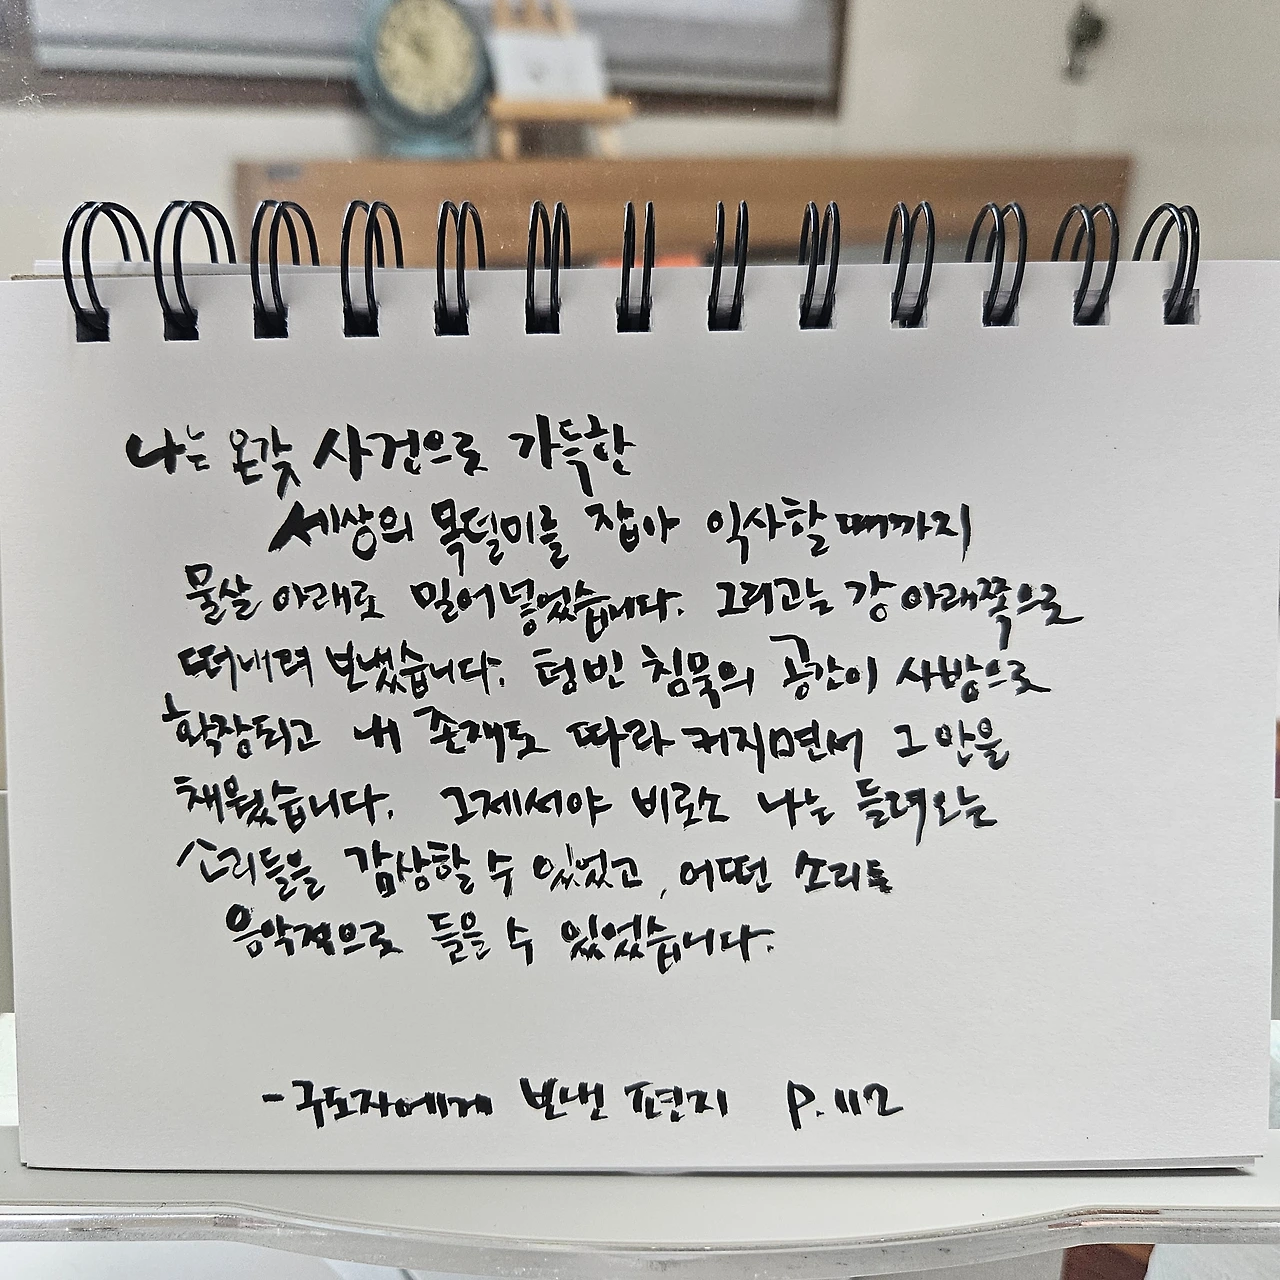 나는 온갖 사건으로 가득한
세상의 목덜미를 잡아 익사할 때까지
물살 아래로 밀어 넣었습니다. 그리고는 강 아래쪽으로
떠내려 보냈습니다. 텅 빈 침묵의 공간이 사방으로
확장되고 내 존재도 따라 커지면서 그 안을
채웠습니다. 그제서야 비로소 나는 들려오는
소리들을 감상할 수 있었고, 어떤 소리도
음악적으로 들을 수 있었습니다.
- 구도자에게 보낸 편지 P. 112